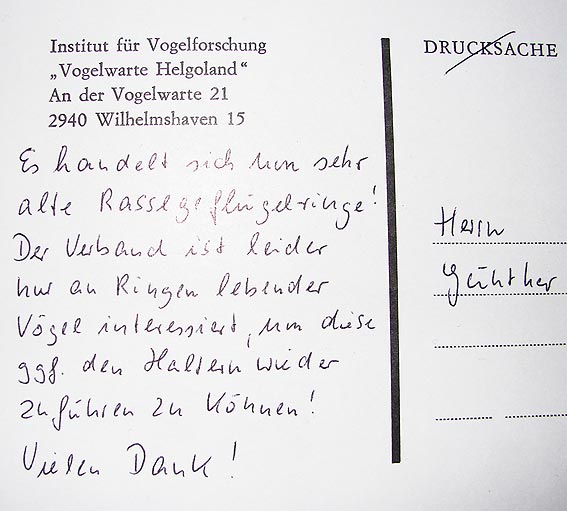 Institut für Vogelforschung
„Vogelwarte Helgoland“
An der Vogelwarte 21
2940 Wilhelmshaven 15
Es handelt sich um sehr
alte Rassegeflügelringe!
Der Verband ist leider
nur an Ringen lebender
Vögel interessiert, um diese
ggf. den Haltern wieder
zuführen zu können!
Vielen Dank!
DRUCKSACHE
Herrn
Günther